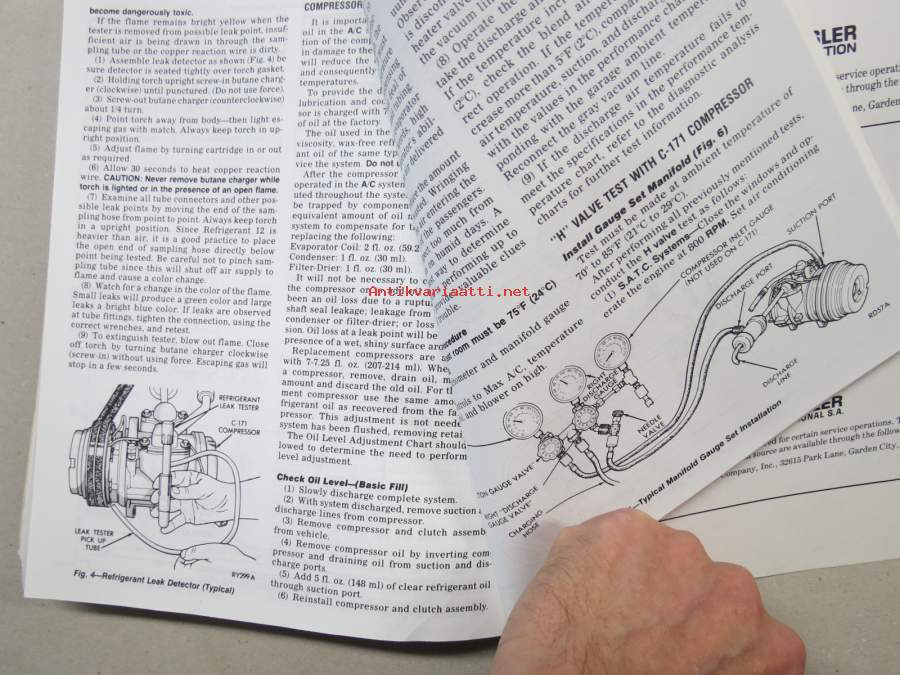 become dangerously toxic.
If the flame remains bright yellow when the
tester is removed from possible leak point, insuf-
ficient air is being drawn in through the sam-
pling tube or the copper reaction wire is dirty.
(1) Assemble leak detector as shown (Fig. 4) be
sure detector is seated tightly over torch gasket.
(2) Holding torch upright screw-in butane charg-
er (clockwise) until punctured. (Do not use force).
(3) Screw-out butane charger (counterclockwise)
about 1/4 turn.
(4) Point torch away from body—then light es-
caping gas with match. Always keep torch in up-
right position.
(5) Adjust flame by turning cartridge in or out
as required.
(6) Allow 30 seconds to heat copper reaction
wire. CAUTION: Never remove butane charger while
torch is lighted or in the presence of an open flame.
(7) Examine all tube connectors and other pos-
sible leak points by moving the end of the sam-
pling hose from point to point. Always keep torch
in a upright position. Since Refrigerant 12 is
heavier than air, it is a good practice to place
the open end of sampling hose directly below
point being tested. Be careful not to pinch sam-
pling tube since this will shut off air supply to
flame and cause a color change.
(8) Watch for a change in the color of the flame.
Small leaks will produce a green color and large
leaks a bright blue color. If leaks are observed
at tube fittings, tighten the connection, using the
correct wrenches, and retest.
(9) To extinguish tester, blow out flame. Close
off torch by turning butane charger clockwise
(screw-in) without using force. Escaping gas will
stop in a few seconds.
REFRIGERANT
LEAK TESTER
C-171
COMPRESSOR
LEAK TESTER
PICK UP
TUBE
RY299A
Fig. 4—Refrigerant Leak Detector (Typical)
COMPRESSOR
It is importa
oil in the A/C
tion of the com
in damage to the
will reduce the
and consequently
temperatures.
To provide the
lubrication and co
sor is charged with
of oil at the factory.
The oil used in the
viscosity, wax-free refi
ant oil of the same typ
vice the system. Do not
After the compressor
operated in the A/C system
uted throughout the syste
be trapped by componen
equivalent amount of oil
system to compensate for
replacing the following:
Evaporator Coil: 2 fl. oz. (59.2
Condenser: 1 fl. oz. (30 ml).
Filter-Drier: 1 fl. oz. (30 ml).
It will not be necessary to
the compressor
been an oil loss due to a ruptu
shaft seal leakage; leakage from
condenser or filter-drier; or loss
sion. Oil loss at a leak point will be
presence of a wet, shiny surface aro
Replacement compressors are
with 7-7.25 fl. oz. (207-214 ml). Whe
a compressor, remove, drain oil, m
amount and discard the old oil. For th
ment compressor use the same amo
frigerant oil as recovered from the fa
pressor. This adjustment is not neede
system has been flushed, removing retai
The Oil Level Adjustment Chart should
lowed to determine the need to perform
level adjustment.
Check Oil Level—(Basic Fill)
(1) Slowly discharge complete system.
(2) With system discharged, remove suction
discharge lines from compressor.
(3) Remove compressor and clutch assemb
from vehicle.
(4) Remove compressor oil by inverting com-
pressor and draining oil from suction and dis-
charge ports.
(5) Add 5 fl. oz. (148 ml) of clear refrigerant oil
through suction port.
(6) Reinstall compressor and clutch assembly.
Antikvariaatti.net
the amount
Wringing
entering the
the passengers.
too much from
humid days. A
way to determine
performing up to
valuable clues
room must be 75°F (24°C)
meter and manifold gauge
to Max A/C, temperature
and blower on high.
is discon
heater valve
the vacuum lin
(8) Operate the
take the discharge ai
If the temperature inc
(2°C), check the blend air
rect operation. If the temperat
crease more than 5°F (2°C), compare
air temperature, suction, and discharg
with the values in the performance cha
ponding with the garage ambient tempera
Reconnect the gray vacuum line.
(9) If the discharge air temperature fails to
meet the specifications in the performance tem-
perature chart, refer to the diagnostic analysis
charts for further test information.
"H" VALVE TEST WITH C-171 COMPRESSOR
Install Gauge Set Manifold (Fig. 6)
Test must be made at ambient temperature of
70° to 85°F (21°C to 29°C).
After performing all previously mentioned tests.
conduct the H valve test as follows:
(1) S.A.T.C. Systems—Close the windows and op-
erate the engine at 800 RPM. Set air conditioning
COMPRESSOR INLET GAUGE
(NOT USED ON C-171)
SUCTION PORT
DISCHARGE PORT
RD57A
DISCHARGE
LINE
NEEDLE
VALVE
GAUGE VALVE
"DISCHARGE
GAUGE VALVE"
CHARGING
HOSE
—Typical Manifold Gauge Set Installation
ervice operati
through the
ne, Garden
LER
ONAL S.A.
ed for certain service operations. T
source are available through the follow
ompany, Inc., 32615 Park Lane, Garden City,